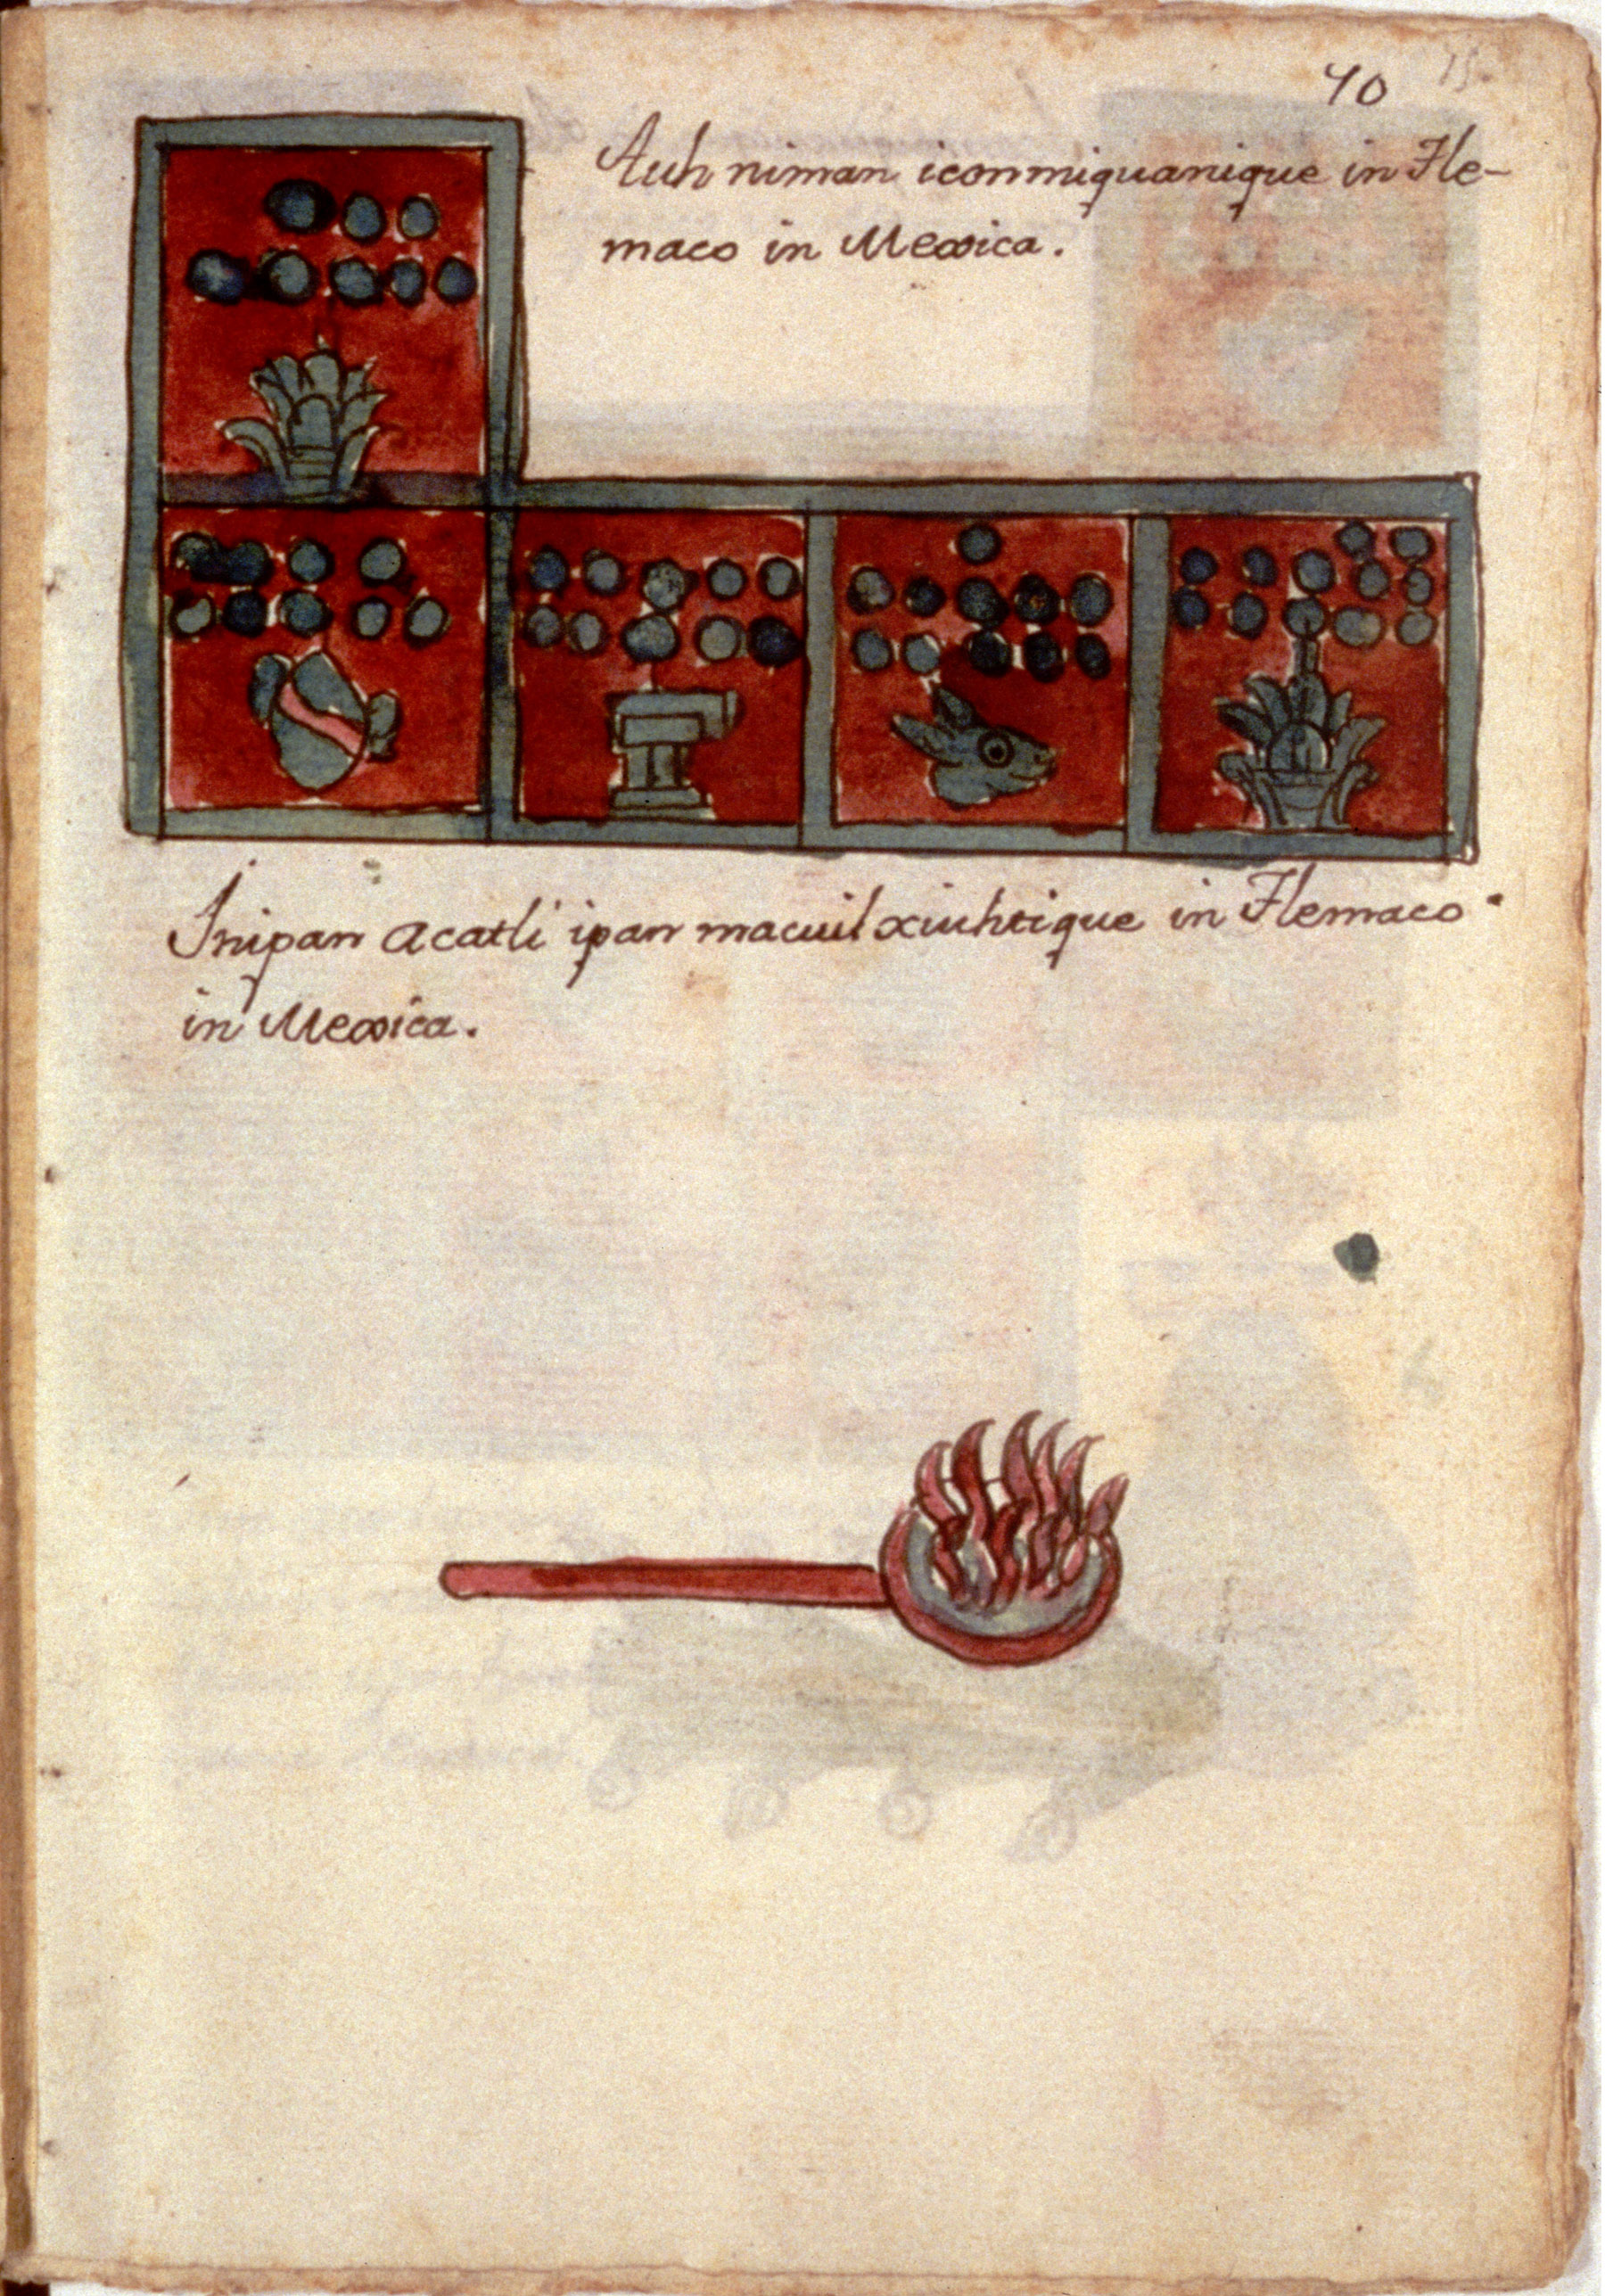 40 15.
Auh niman iconmiquanique in Tle-
maco in Mexica.
Inipan acatli ipan macuilxiuhtique in Tlemaco
in Mexica.